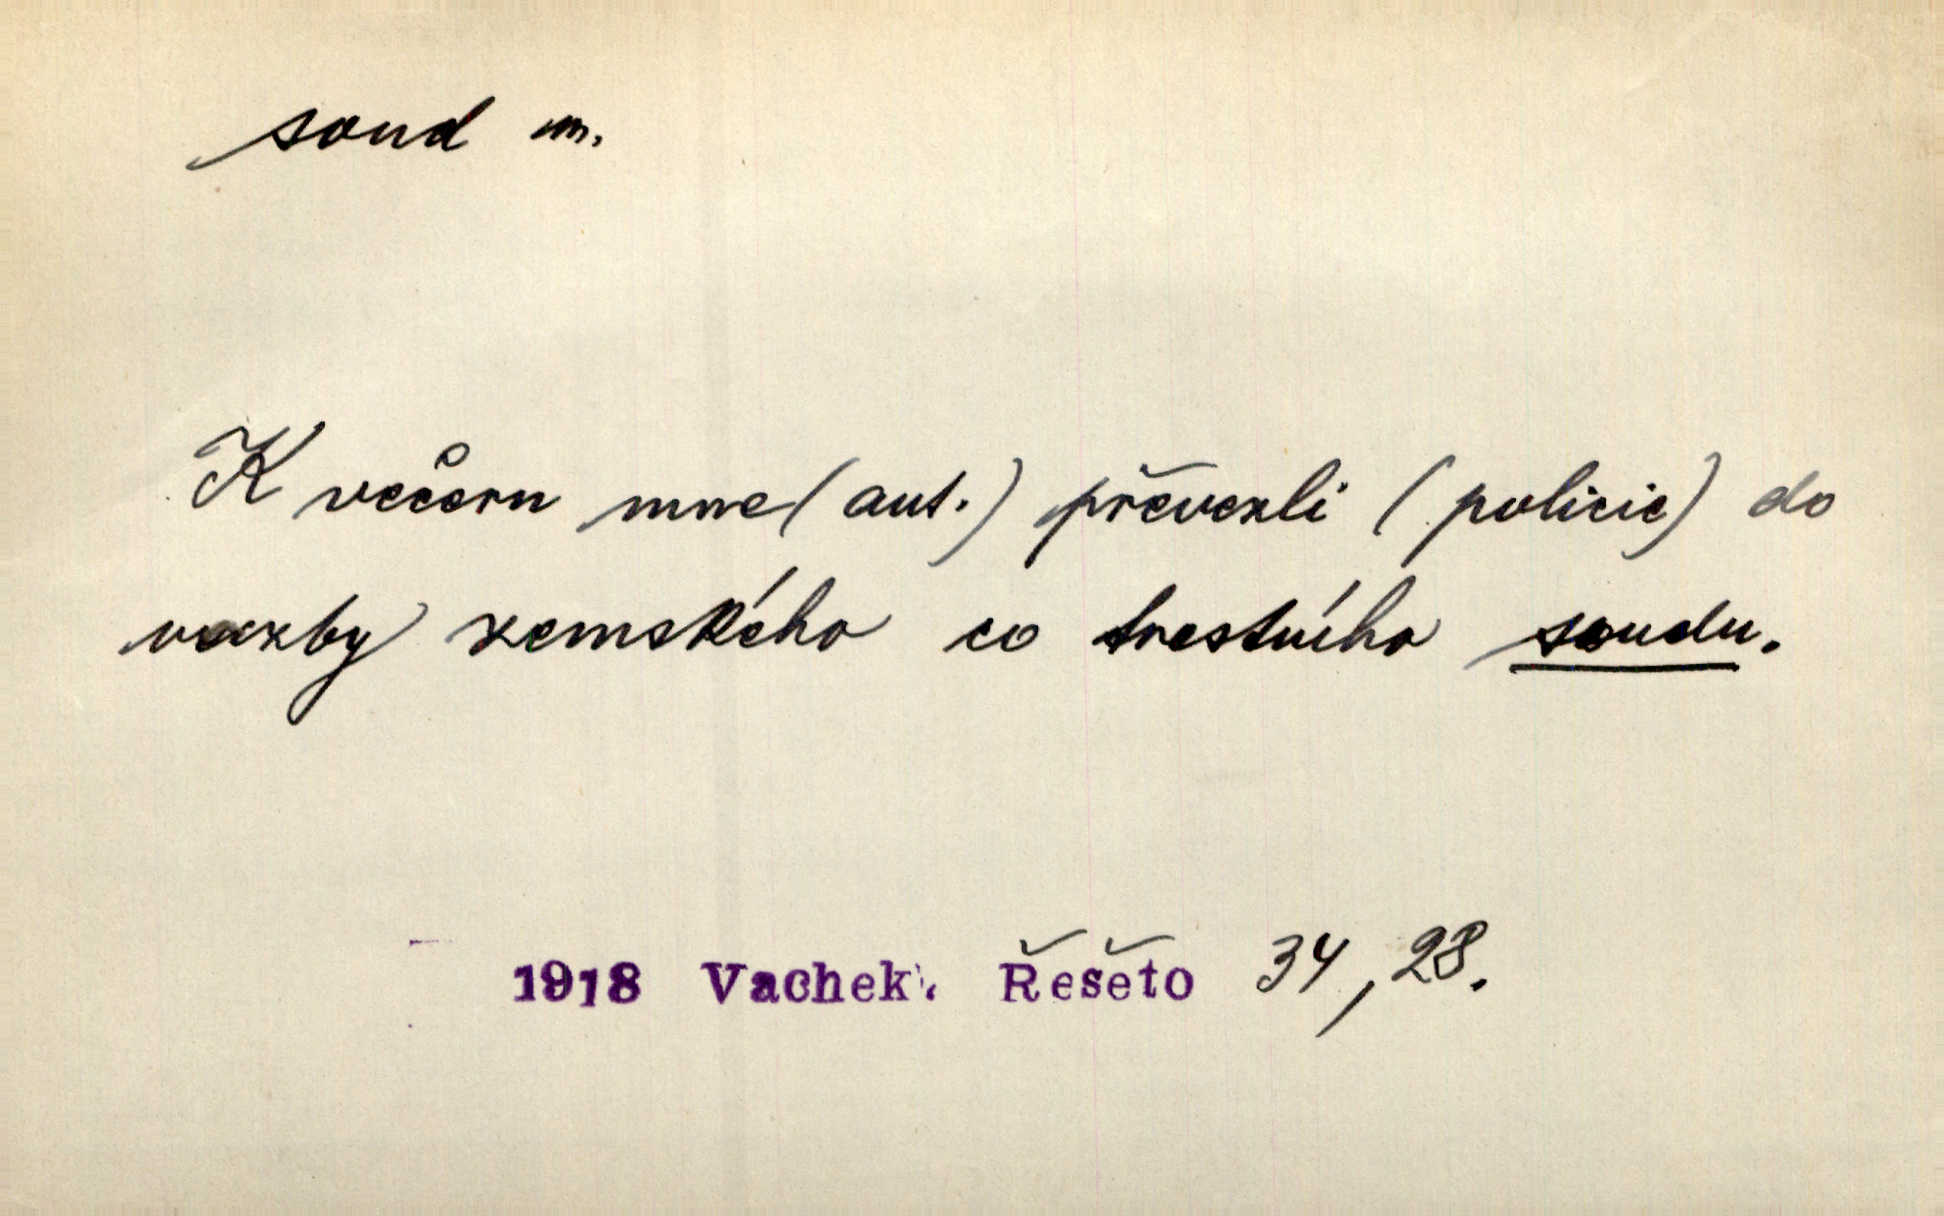 soud m.
K večeru mne (aut.) převezli (policie) do
vazby zemského co trestního soudu.
1918 Vachek, Řešeto 34, 28.